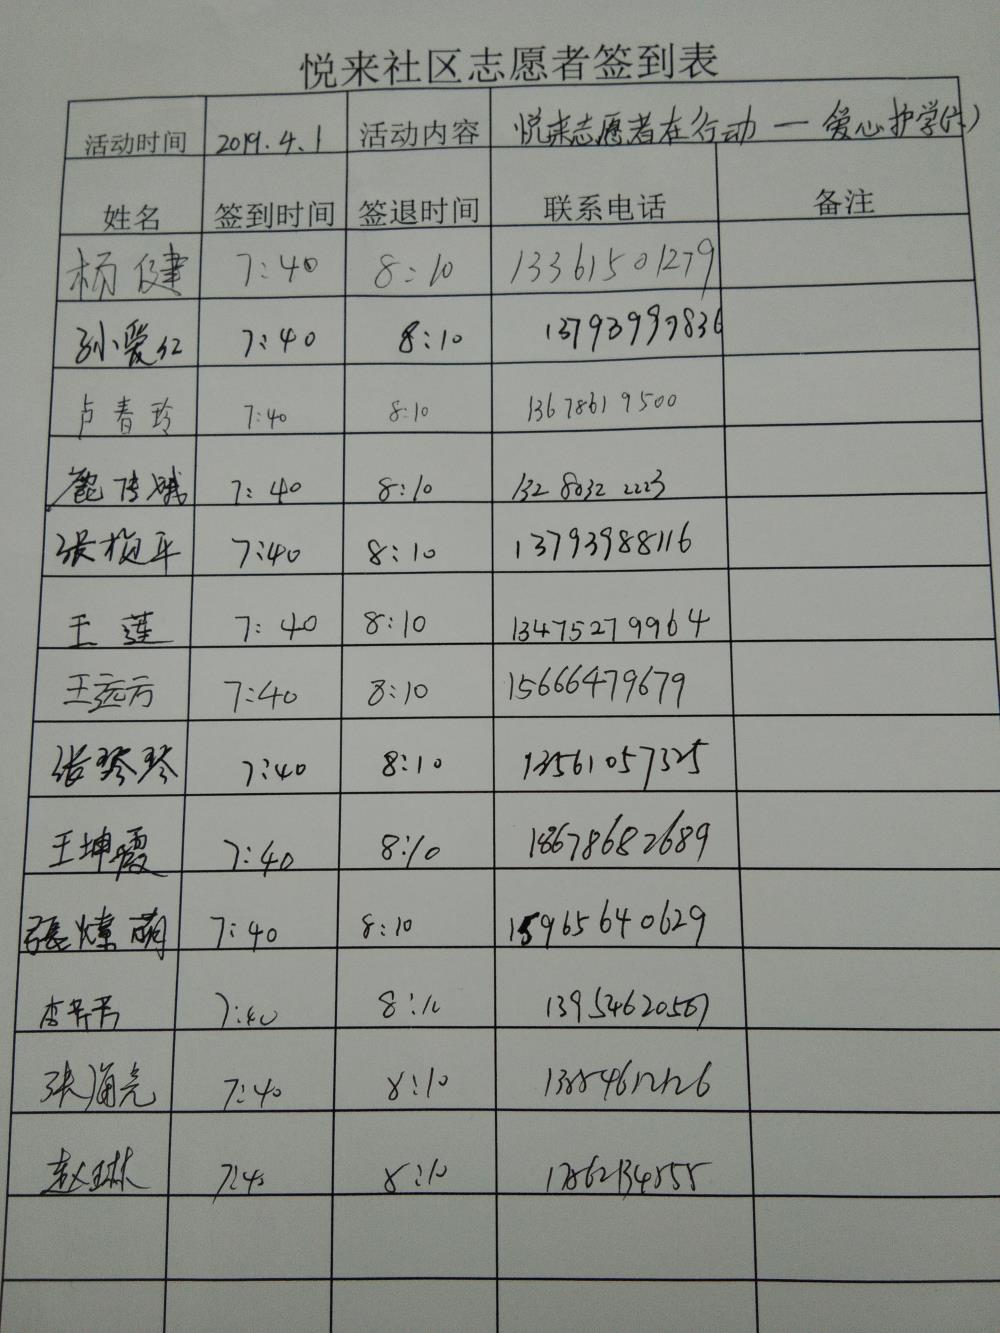 悦来社区志愿者签到表
活动时间 2019.4.1 活动内容 悦来志愿者在行动 — 爱心护学(六)
姓名 签到时间 签退时间 联系电话 备注
杨健 7:40 8:10 13361501279
孙爱红 7:40 8:10 13793997836
卢春玲 7:40 8:10 13678619500
7:40 8:10 132 8032 2223
张梅平 7:40 8:10 13793988116
王莲 7:40 8:10 13475279964
王远方 7:40 8:10 15666479679
张琴琴 7:40 8:10 13561057325
王坤霞 7:40 8:10 18678682689
張燎萌 7:40 8:10 15965640629
李芹芳 7:40 8:10 13954620567
张海亮 7:40 8:10
赵琳 7:40 8:10